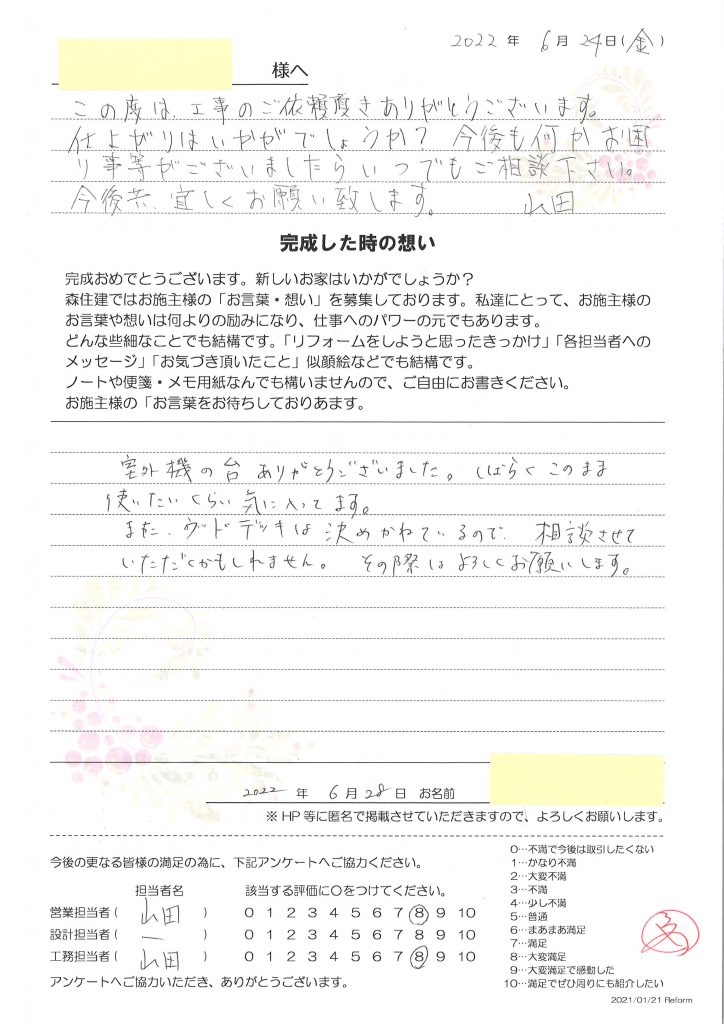 2022 年 6 月 24 日(金)
様へ
この度は、工事のご依頼頂きありがとうございます。
仕上がりはいかがでしょうか? 今後も何かお困
り事等がございましたらいつでもご相談下さい。
今後共、宜しくお願い致します。 山田
完成した時の想い
完成おめでとうございます。新しいお家はいかがでしょうか?
森住建ではお施主様の「お言葉・想い」を募集しております。私達にとって、お施主様の
お言葉や想いは何よりの励みになり、仕事へのパワーの元でもあります。
どんな些細なことでも結構です。「リフォームをしようと思ったきっかけ」「各担当者への
メッセージ」「お気づき頂いたこと」似顔絵などでも結構です。
ノートや便箋・メモ用紙なんでも構いませんので、ご自由にお書きください。
お施主様の「お言葉をお待ちしておりあます。
室外機の台 ありがとうございました。しばらくこのまま
使いたいくらい気に入ってます。
また、ウッドデッキは決めかねているので、相談させて
いただくかもしれません。 その際はよろしくお願いします。
2022 年 6 月 28 日 お名前
※ HP 等に匿名で掲載させていただきますので、よろしくお願いします。
今後の更なる皆様の満足の為に、下記アンケートへご協力ください。
担当者名 該当する評価に○をつけてください。
営業担当者( 山田 ) 0 1 2 3 4 5 6 7 8 9 10
設計担当者( ー ) 0 1 2 3 4 5 6 7 8 9 10
工務担当者( 山田 ) 0 1 2 3 4 5 6 7 8 9 10
アンケートへご協力いただき、ありがとうございます。
0…不満で今後は取引したくない
1…かなり不満
2…大変不満
3…不満
4…少し不満
5…普通
6…まあまあ満足
7…満足
8…大変満足
9…大変満足で感動した
10…満足でぜひ周りにも紹介したい
2021/01/21 Reform